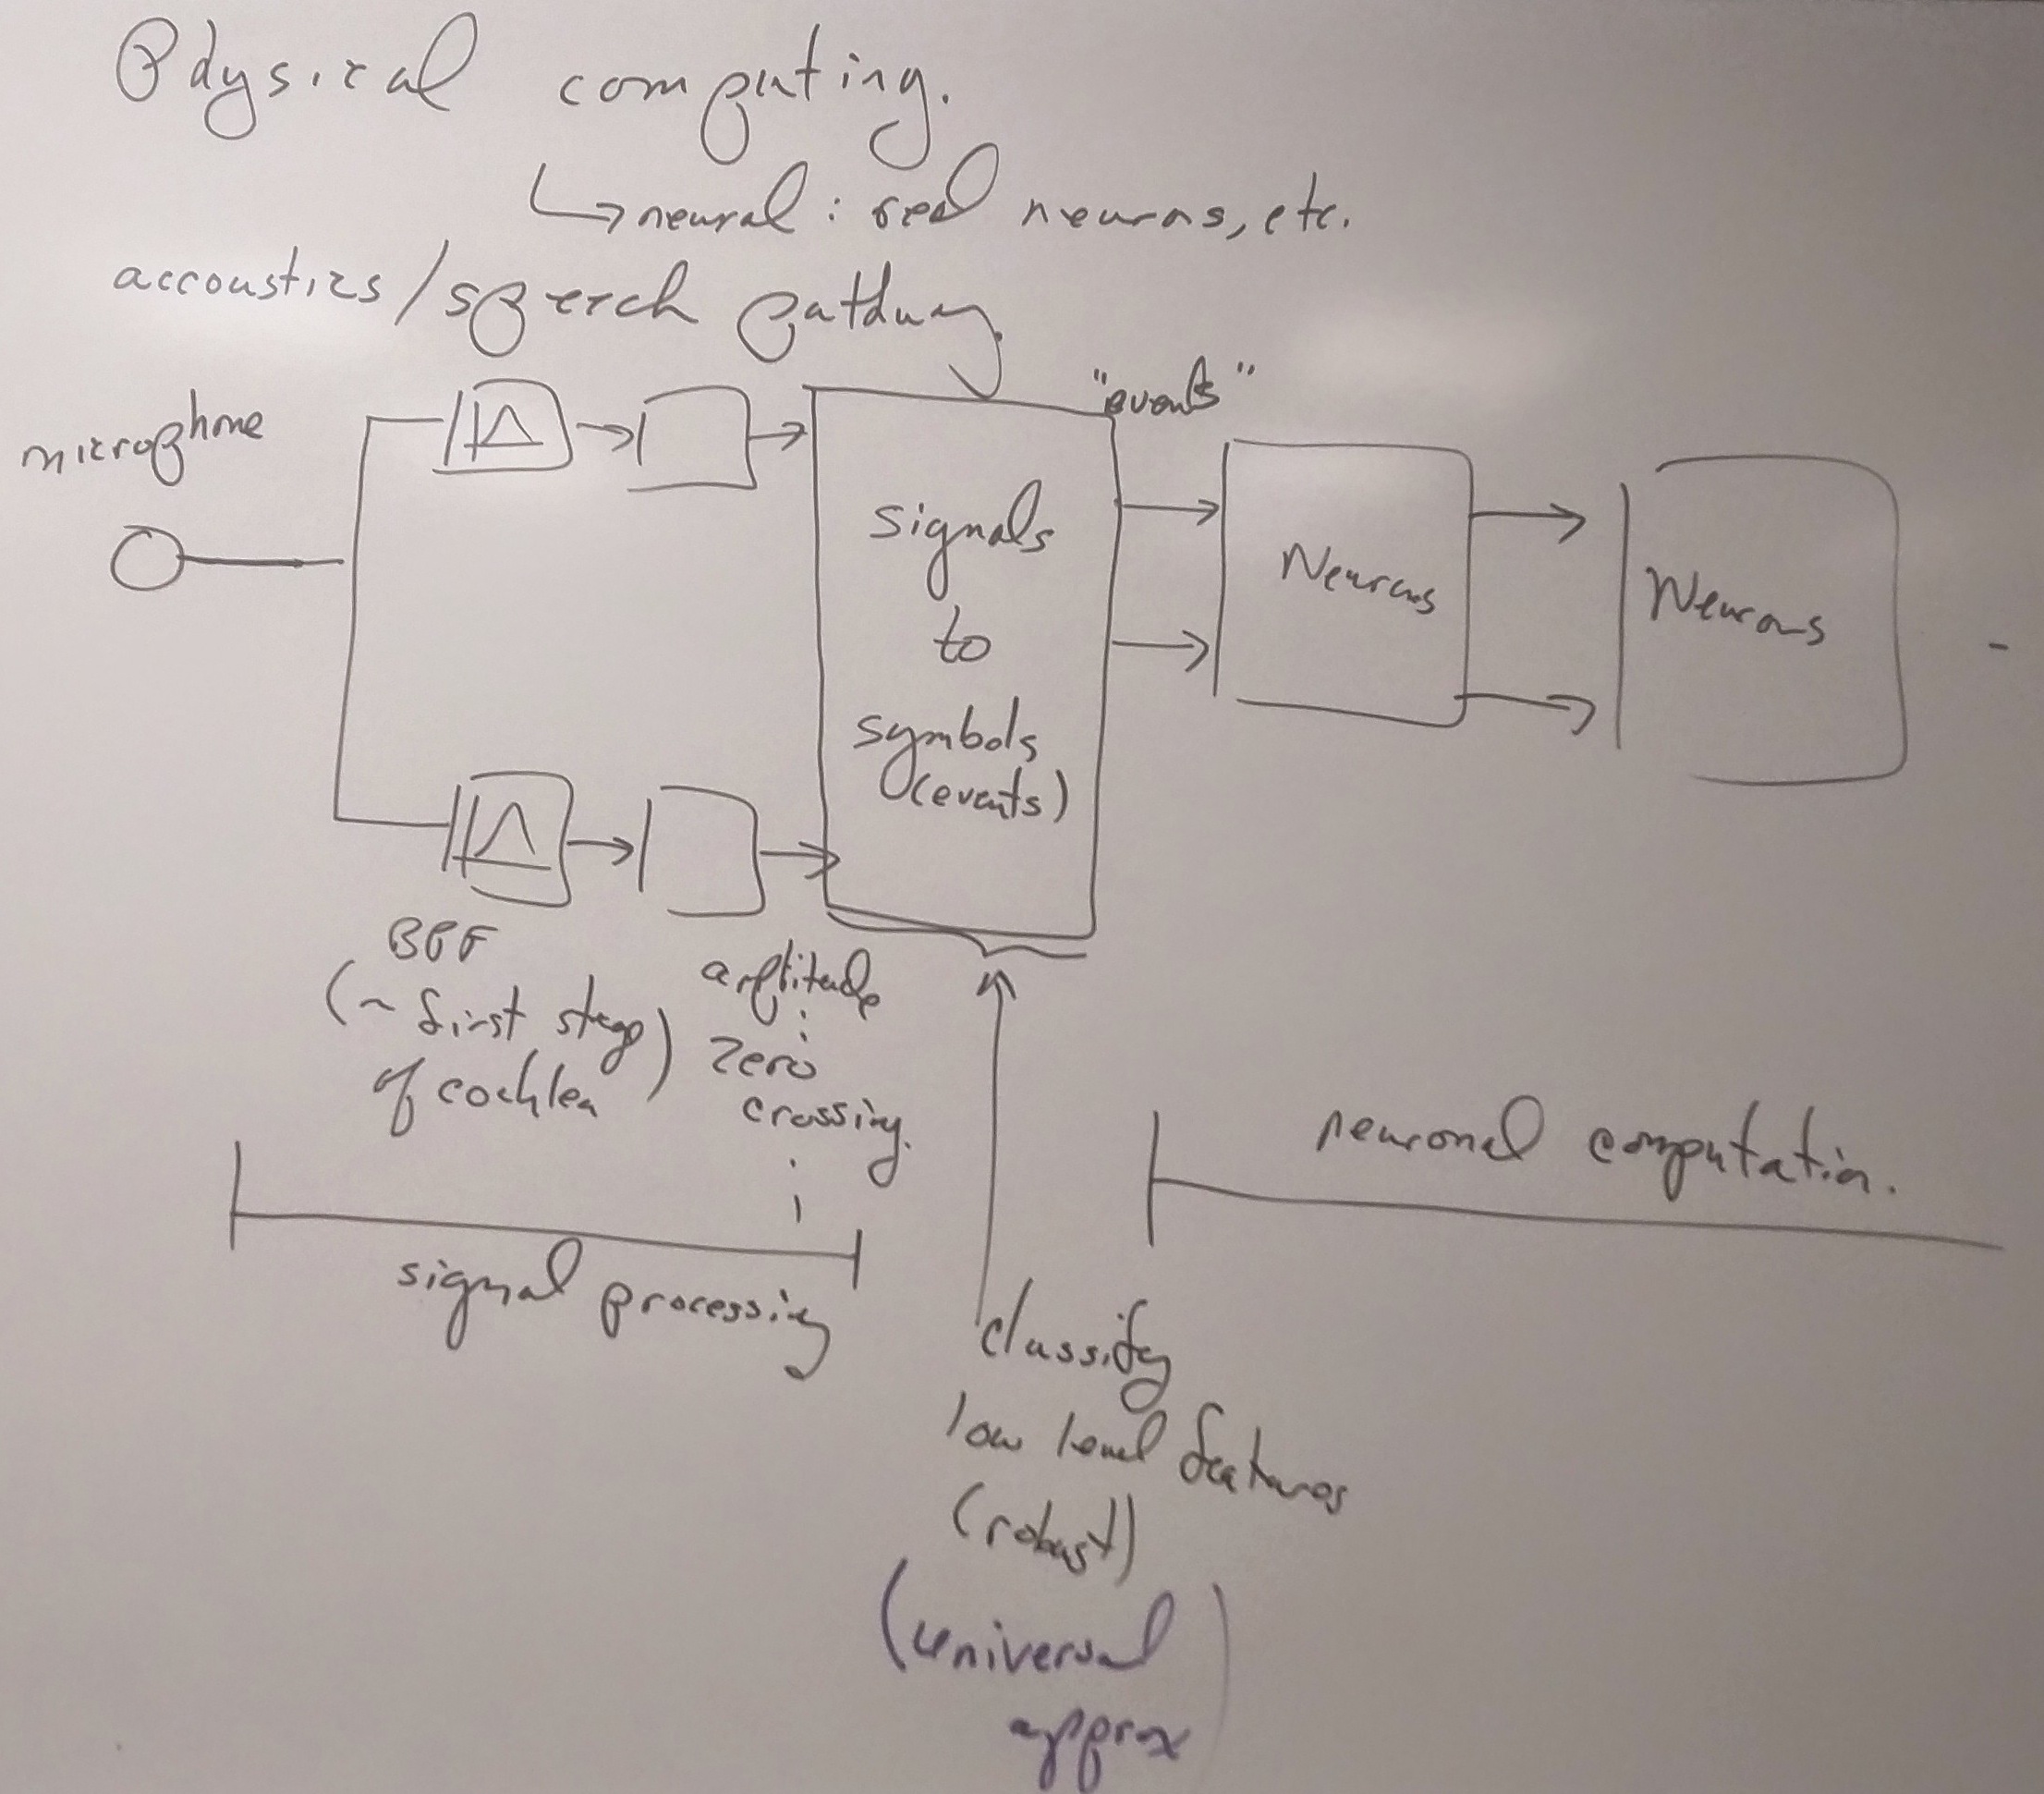 Physical computing.
↳ neural : real neurons, etc.
accoustics / speech pathway
microphone
"events"
signals
to
symbols
(events)
Neurons
Neurons
BPF
(~ first stage)
of cochlea
amplitude
zero
crossing.
signal processing
neuronal computation.
classify
low level features
(robust)
(universal
approx